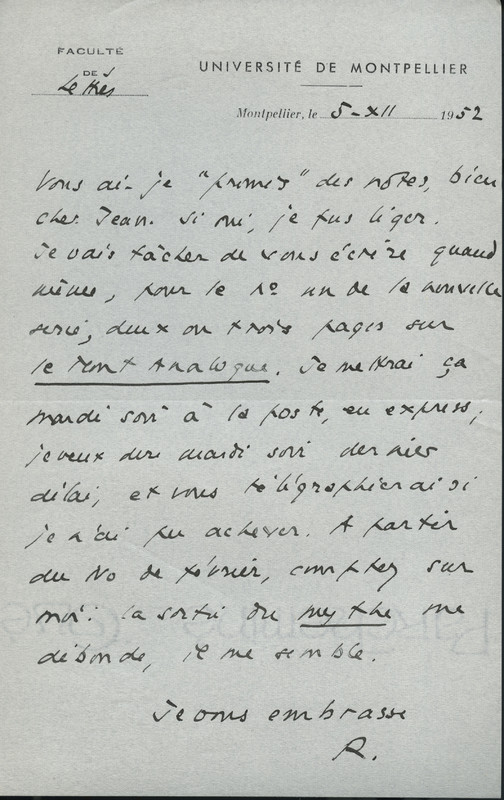 FACULTÉ
DES
Lettres
UNIVERSITÉ DE MONTPELLIER
Montpellier, le 5-XII 1952
Vous ai-je "promis" des notes, bien
cher Jean. Si oui, je fus léger.
Je vais tâcher de vous écrire quand
même, pour le no un de la nouvelle
série, deux ou trois pages sur
le Mont Analogue. Je mettrai ça
mardi soir à la poste, en express,
je veux dire mardi soir dernier
délai, et vous télégraphierai si
je n'ai pu achever. A partir
du No de février, comptez sur
moi: la sortie du mythe me
débonde, il me semble.
Je vous embrasse
R.